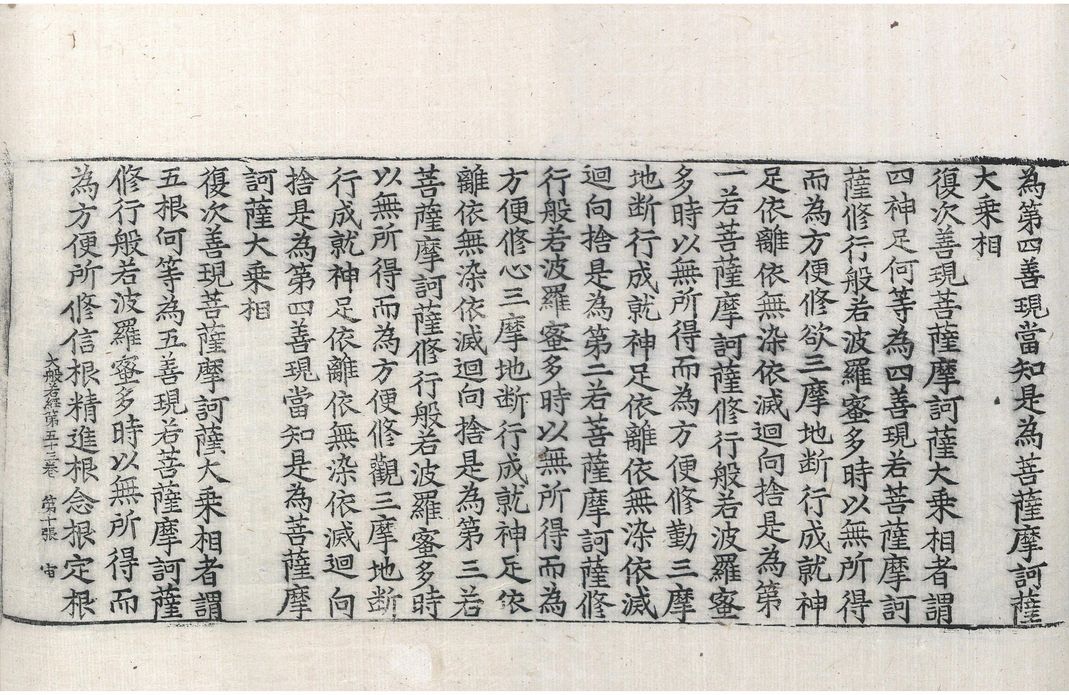 為第四善現當知是為菩薩摩訶薩
大乘相
復次善現菩薩摩訶薩大乘相者謂
四神足何等為四善現若菩薩摩訶
薩修行般若波羅蜜多時以無所得
而為方便修欲三摩地断行成就神
足依離依無染依滅迴向捨是為第
一若菩薩摩訶薩修行般若波羅蜜
多時以無所得而為方便修勤三摩
地断行成就神足依離依無染依滅
迴向捨是為第二若菩薩摩訶薩修
行般若波羅蜜多時以無所得而為
方便修心三摩地断行成就神足依
離依無染依滅迴向捨是為第三若
菩薩摩訶薩修行般若波羅蜜多時
以無所得而為方便修觀三摩地断
行成就神足依離依無染依滅迴向
捨是為第四善現當知是為菩薩摩
訶薩大乘相
復次善現菩薩摩訶薩大乘相者謂
五根何等為五善現若菩薩摩訶薩
修行般若波羅蜜多時以無所得而
為方便所修信根精進根念根定根
大般若經第五十三卷 第十張 宙